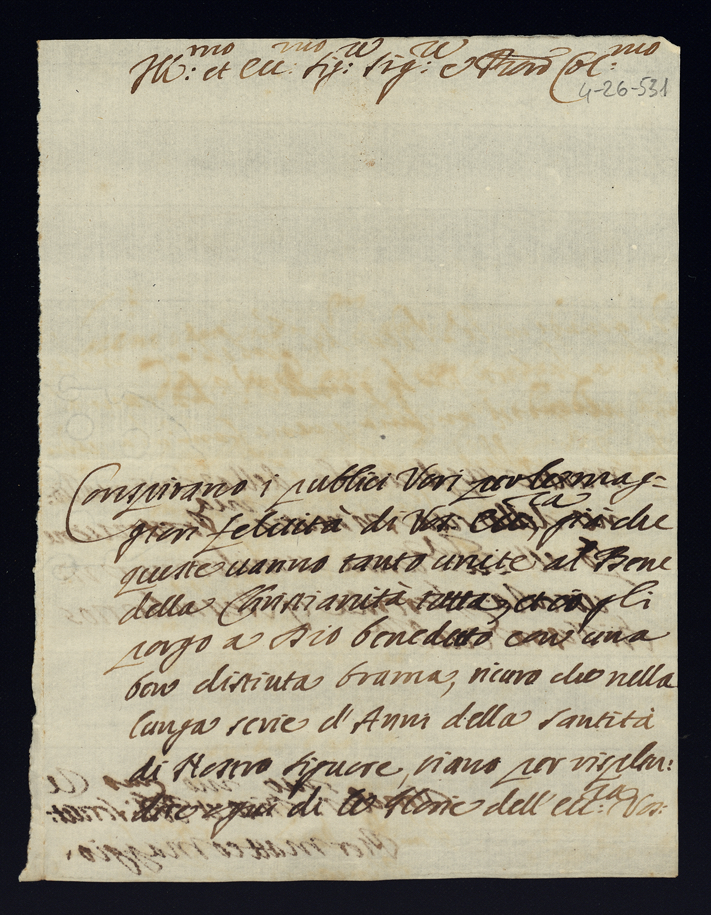 Ill:mo et Ecc:mo Sig:re Sig:re e Pron Col:mo
4-26-531
Conspirano i publici Voti per le mag=
giori felicità di Vos Ecc:za, già che
queste vanno tanto unite al Bene
della Christianità tutta, et io gli
porgo a Dio benedetto con una
ben distinta brama, sicuro che nella
lunga serie d'Anni della Santità
di Nostro Signore, siano per risplen:
dere ogni di le Glorie dell'Ecc:za Vos: